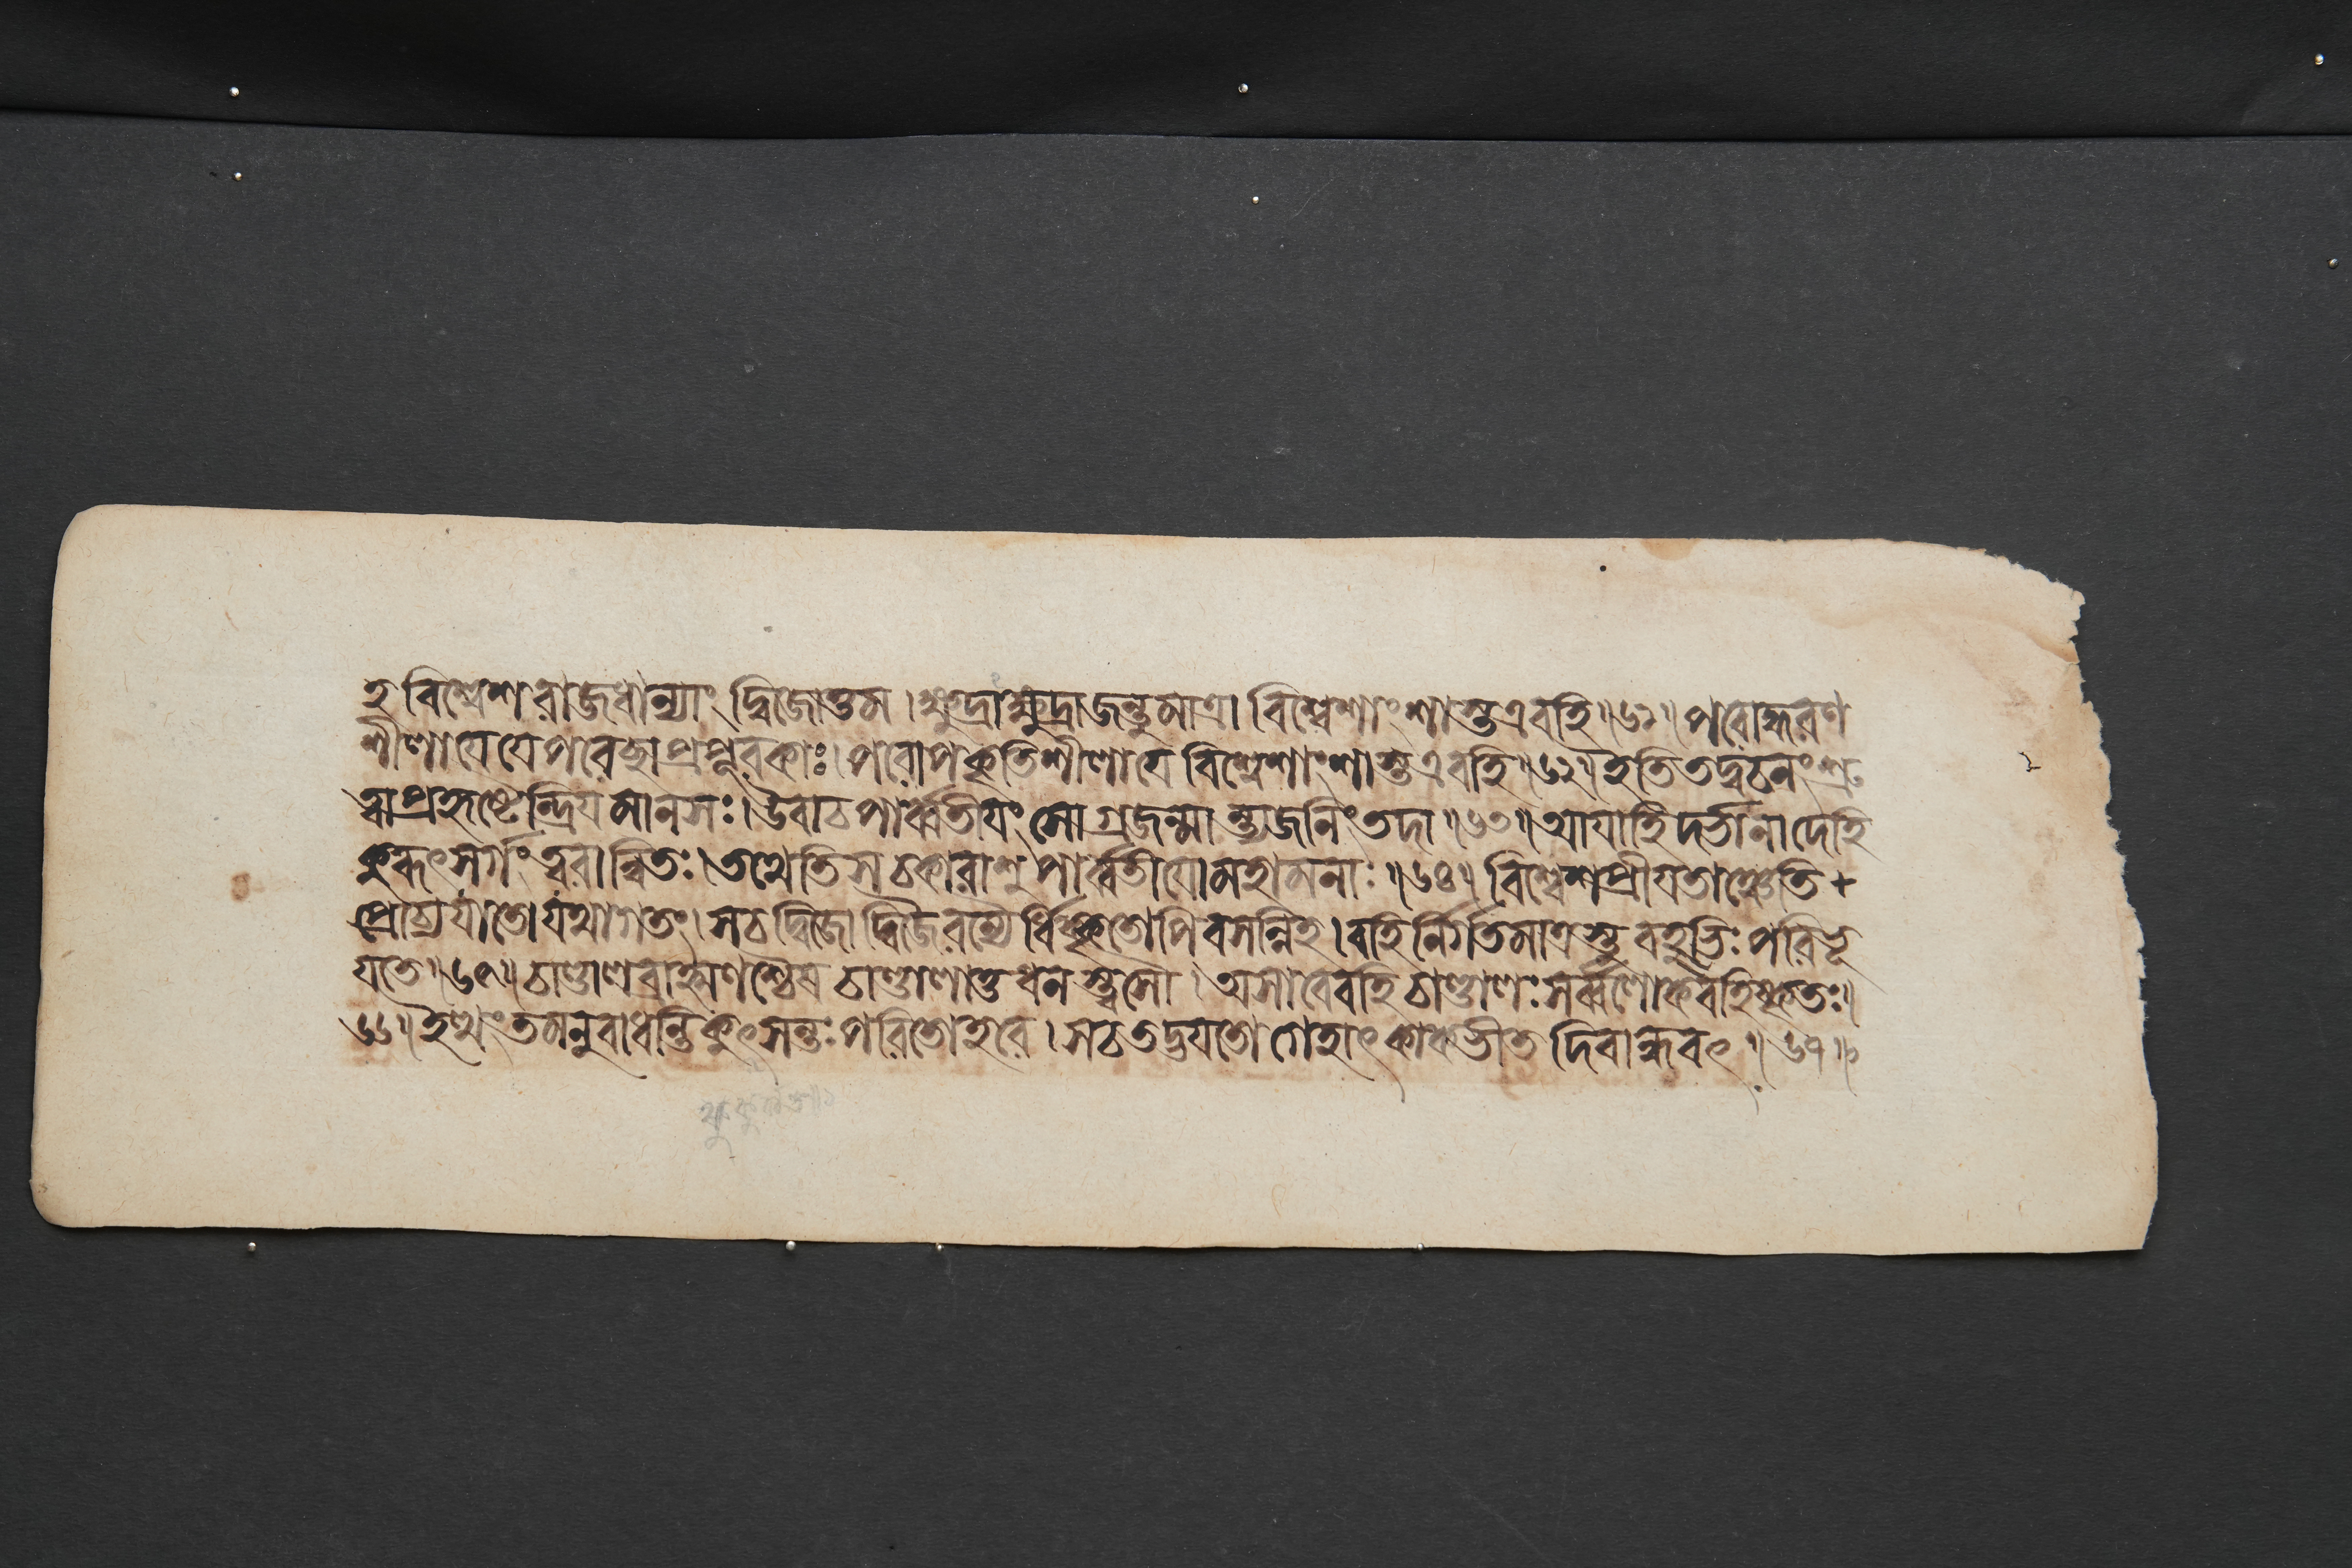 হ বিশ্বেশরাজধান্যাং দ্বিজোত্তম।ক্ষুদ্রাক্ষুদ্রাজন্তুমাত্রা বিশ্বেশাংশাস্তএবহি॥৬১॥পরোদ্ধরণ
শীলাযেযেপরেচ্ছাপ্রপূরকাঃ।পরোপকৃতিশীলাযে বিশ্বেশাংশাস্তএবহি॥৬২॥ইতিতদ্বচনংশ্রু
ত্বাপ্রহৃষ্টেন্দ্রিযমানসঃ।উবাচপার্ব্বতীযংসোগ্রজন্মান্ত্যজনিংতদা॥৬৩॥আযাহিদর্ভানাদেহি
কুরূৎসর্গংত্বরান্বিতঃ।তথেতিসচকারাশুপার্ব্বতীযোমহামনাঃ॥৬৪॥বিশ্বেশপ্রীযতাঞ্চেতি+
প্রোচ্যযাতোযথাগতং।সচদ্বিজোদ্বিজৈরন্যৈর্ধিক্কৃতোপিবসন্নিহ।বহির্নির্গতমাত্রস্তুবহুভিঃপরিভূ
যতে॥৬৫॥চাণ্ডালব্রাহ্মণশ্চৈষচাণ্ডালাত্তধনস্ত্বসৌ।অসাবেবহিচাণ্ডালঃসর্ব্বলোকৈবহিষ্কৃতঃ॥
৬৬॥ইত্থংতমনুবাধন্তিকুৎসন্তঃপরিতোহরে।সচতদ্ভযতোগেহাৎকাকভীতদিবান্ধবৎ॥৬৭॥